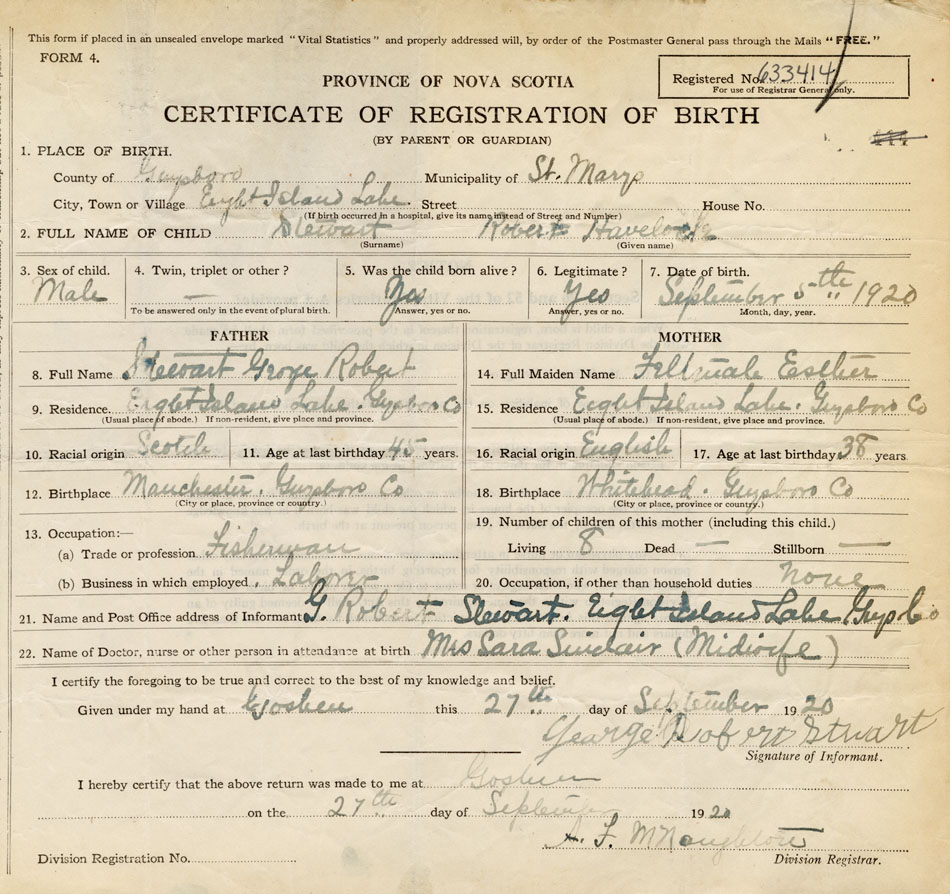 This form if placed in an unsealed envelope marked "Vital Statistics" and properly addressed will, by order of the Postmaster General pass through the Mails "FREE."
FORM 4.
Registered No. 633414
For use of Registrar General only.
PROVINCE OF NOVA SCOTIA
CERTIFICATE OF REGISTRATION OF BIRTH
(BY PARENT OR GUARDIAN)
1. PLACE OF BIRTH.
County of Guysboro Municipality of St. Marys
City, Town or Village Eight Island Lake Street House No.
(If birth occurred in a hospital, give its name instead of Street and Number)
2. FULL NAME OF CHILD Stewart Robert Havelock
(Surname) (Given name)
3. Sex of child. 4. Twin, triplet or other? 5. Was the child born alive? 6. Legitimate? 7. Date of birth.
Male — Yes Yes September 5th 1920
To be answered only in the event of plural birth. Answer, yes or no. Answer, yes or no. Month, day, year.
FATHER
8. Full Name Stewart George Robert
9. Residence. Eight Island Lake. Guysboro Co
(Usual place of abode.) If non-resident, give place and province.
10. Racial origin Scotch 11. Age at last birthday 45 years.
12. Birthplace Manchester. Guysboro Co
(City or place, province or country.)
13. Occupation:—
(a) Trade or profession Fisherman
(b) Business in which employed. Laborer
MOTHER
14. Full Maiden Name Esther
15. Residence Eight Island Lake. Guysboro Co
(Usual place of abode.) If non-resident, give place and province.
16. Racial origin English 17. Age at last birthday 38 years
18. Birthplace Whitehead. Guysboro Co
(City or place, province or country.)
19. Number of children of this mother (including this child.)
Living 8 Dead — Stillborn —
20. Occupation, if other than household duties None
21. Name and Post Office address of Informant G. Robert Stewart. Eight Island Lake Guys Co
22. Name of Doctor, nurse or other person in attendance at birth Mrs Sara Sinclair (Midwife)
I certify the foregoing to be true and correct to the best of my knowledge and belief.
Given under my hand at Goshen this 27th day of September 1920
George Robert Stuart
Signature of Informant.
I hereby certify that the above return was made to me at Goshen
on the 27th day of September 1920
A. F. McNaughton
Division Registration No. Division Registrar.